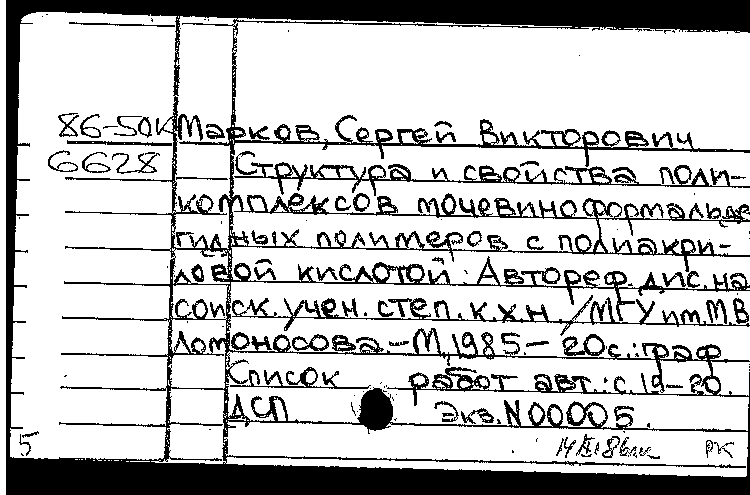 86-50К Марков, Сергей Викторович
6628 Структура и свойства поли-
комплексов мочевиноформальде
гидных полимеров с полиакри-
ловой кислотой: Автореф. дис. на
соиск. учен. степ. к.х.н. /МГУ им. М.В.
Ломоносова.-М., 1985.- 20с.: граф
Список работ авт.: с. 19-20.
ДСП Экз. N 00005.
5 РК